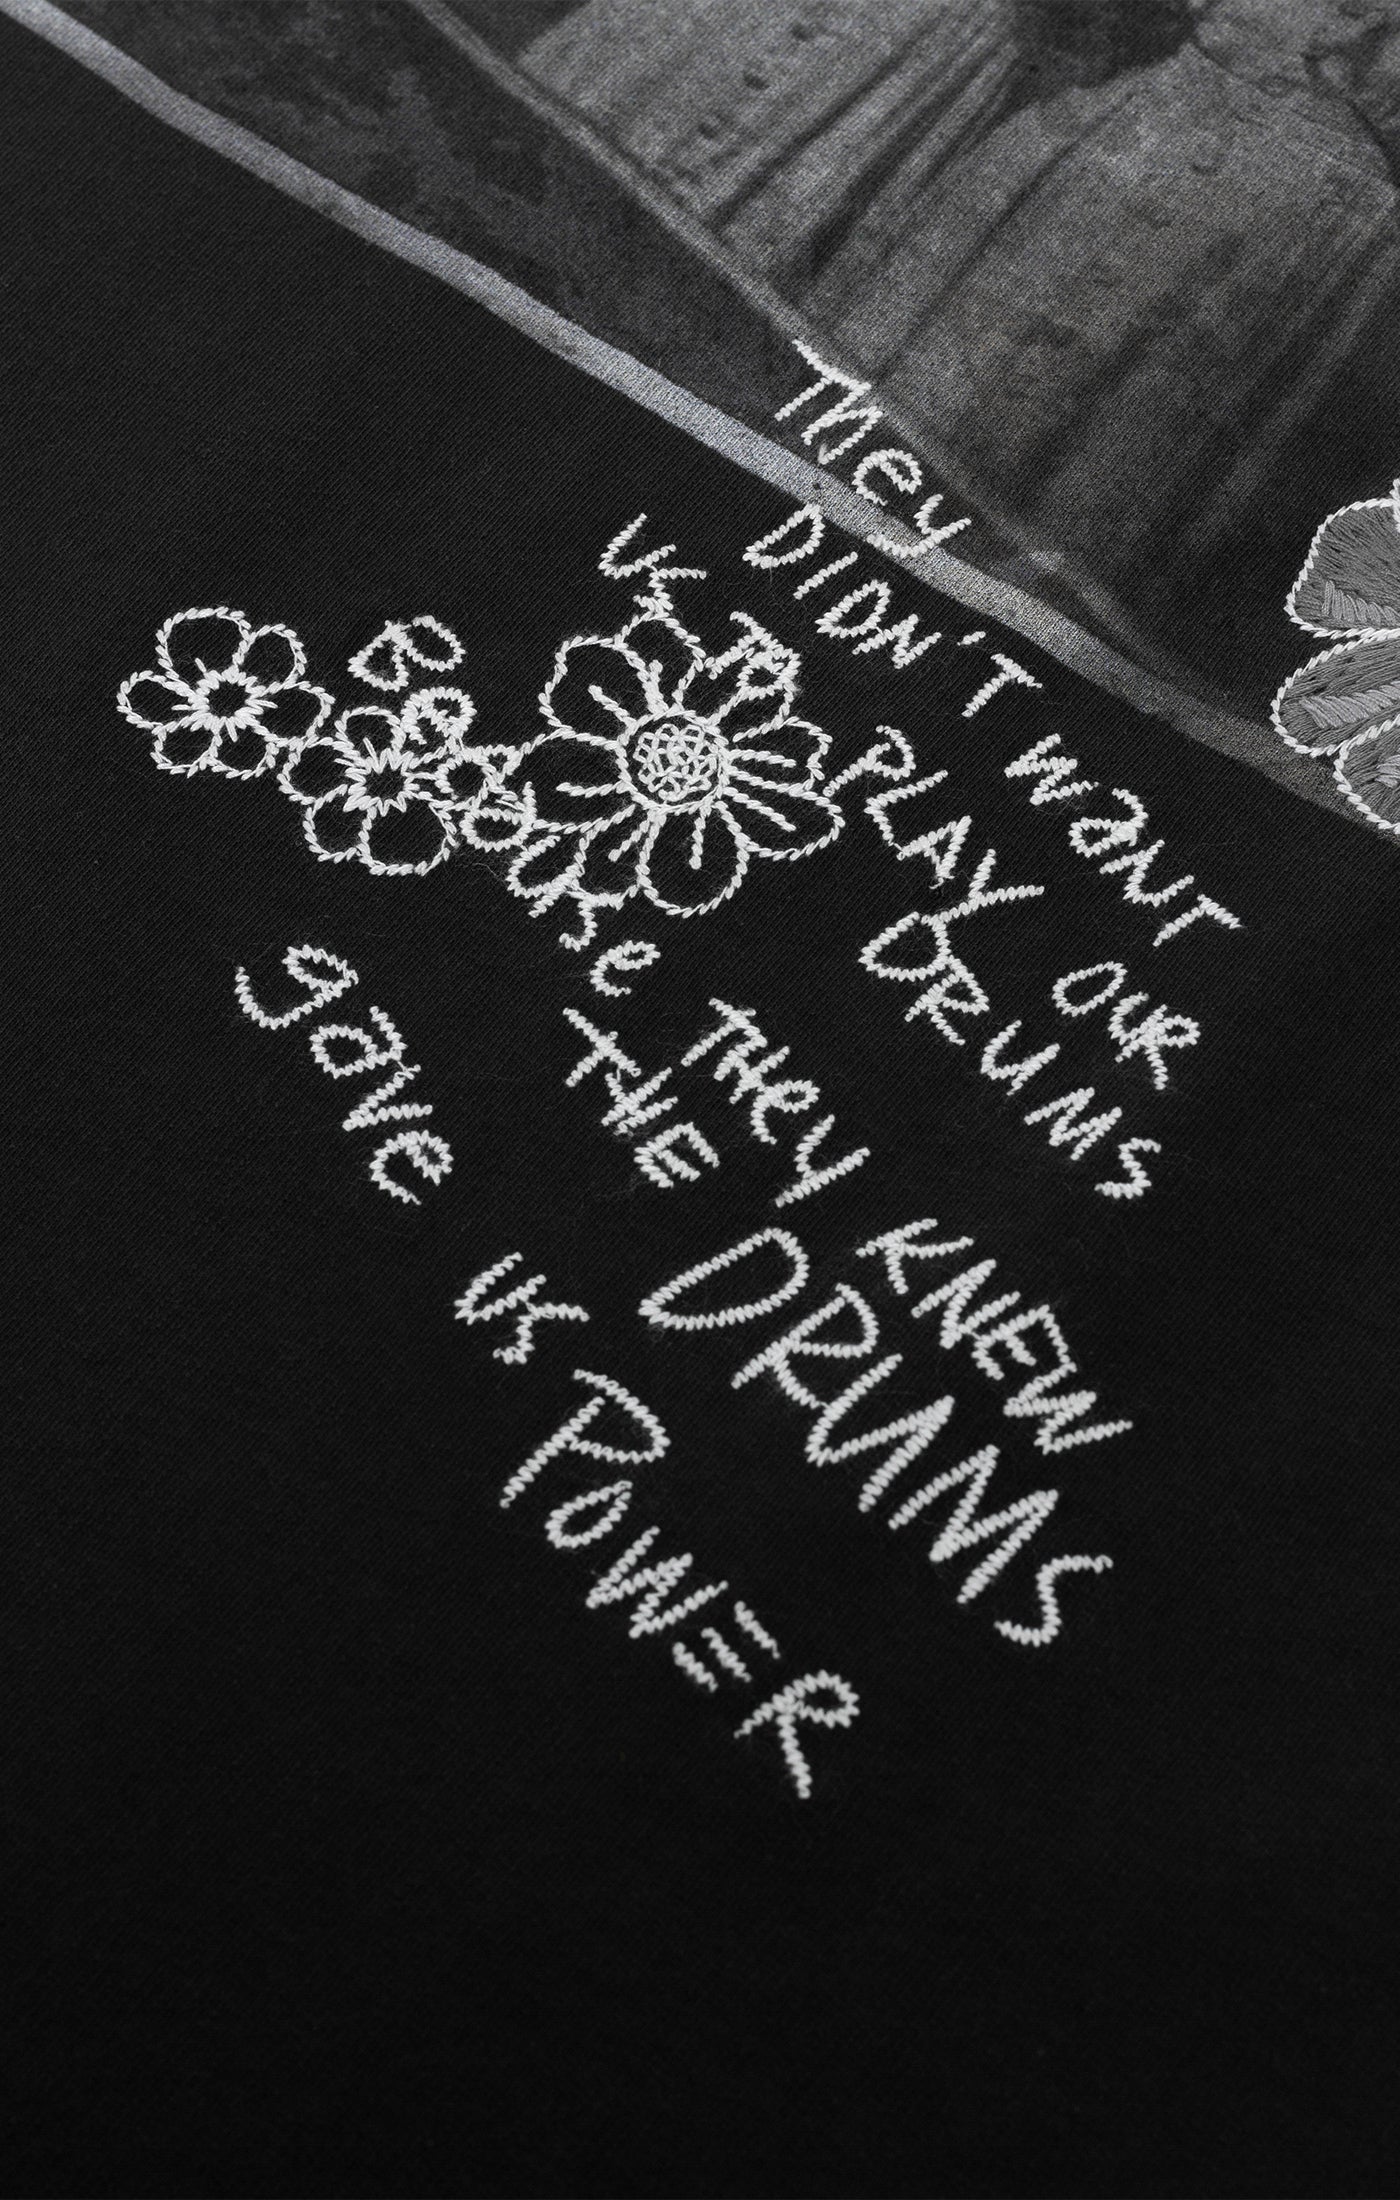 They
DIDN'T WaNT
US TO PLAY OUR
DRUMS
Because THey KNEW
THE DRUMS
gave US POWER